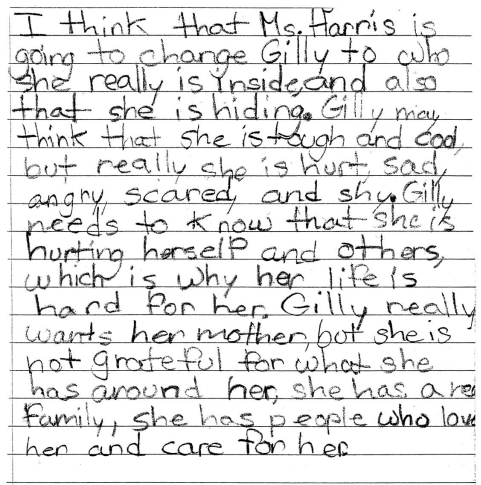 I think that Ms. Harris is
going to change Gilly to who
she really is inside, and also
that she is hiding. Gilly may
think that she is tough and cool,
but really she is hurt, sad,
angry, scared, and shy. Gilly
needs to know that she is
hurting herself and others,
which is why her life is
hard for her. Gilly really
wants her mother, but she is
not grateful for what she
has around her, she has a rea
family, she has people who love
her and care for her.